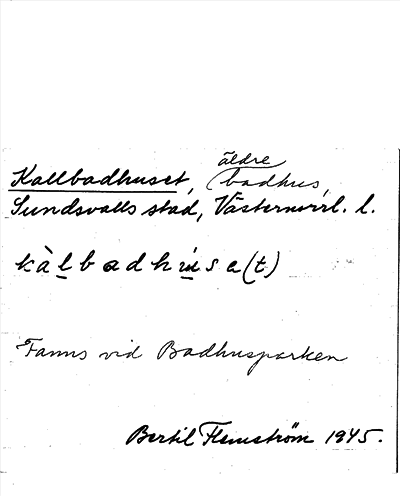 Kallbadhuset, äldre badhus,
Sundsvalls stad, Västernorrl. l.
kàlbadhúsa(t)
Fanns vid Badhusparken
Bertil Flemström 1945.